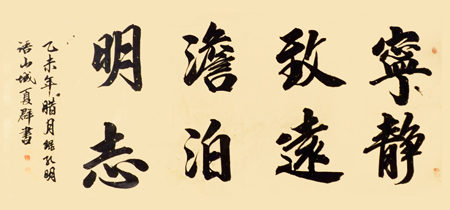 寧靜
致遠
澹泊
明志
乙未年腊月錄孔明
語山城夏群書